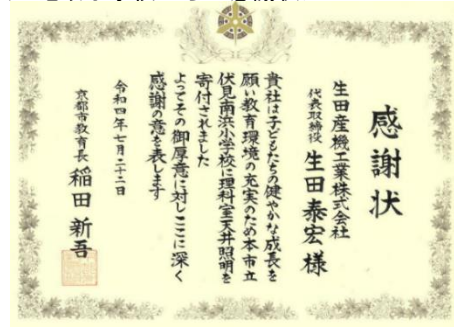 感謝状
生田産機工業株式会社
代表取締役 生田泰宏様
貴社は子どもたちの健やかな成長を
願い教育環境の充実のため本市立
伏見南浜小学校に理科室天井照明を
寄付されました
よってその御厚意に対しここに深く
感謝の意を表します
令和四年七月二十二日
京都市教育長 稲田新吾